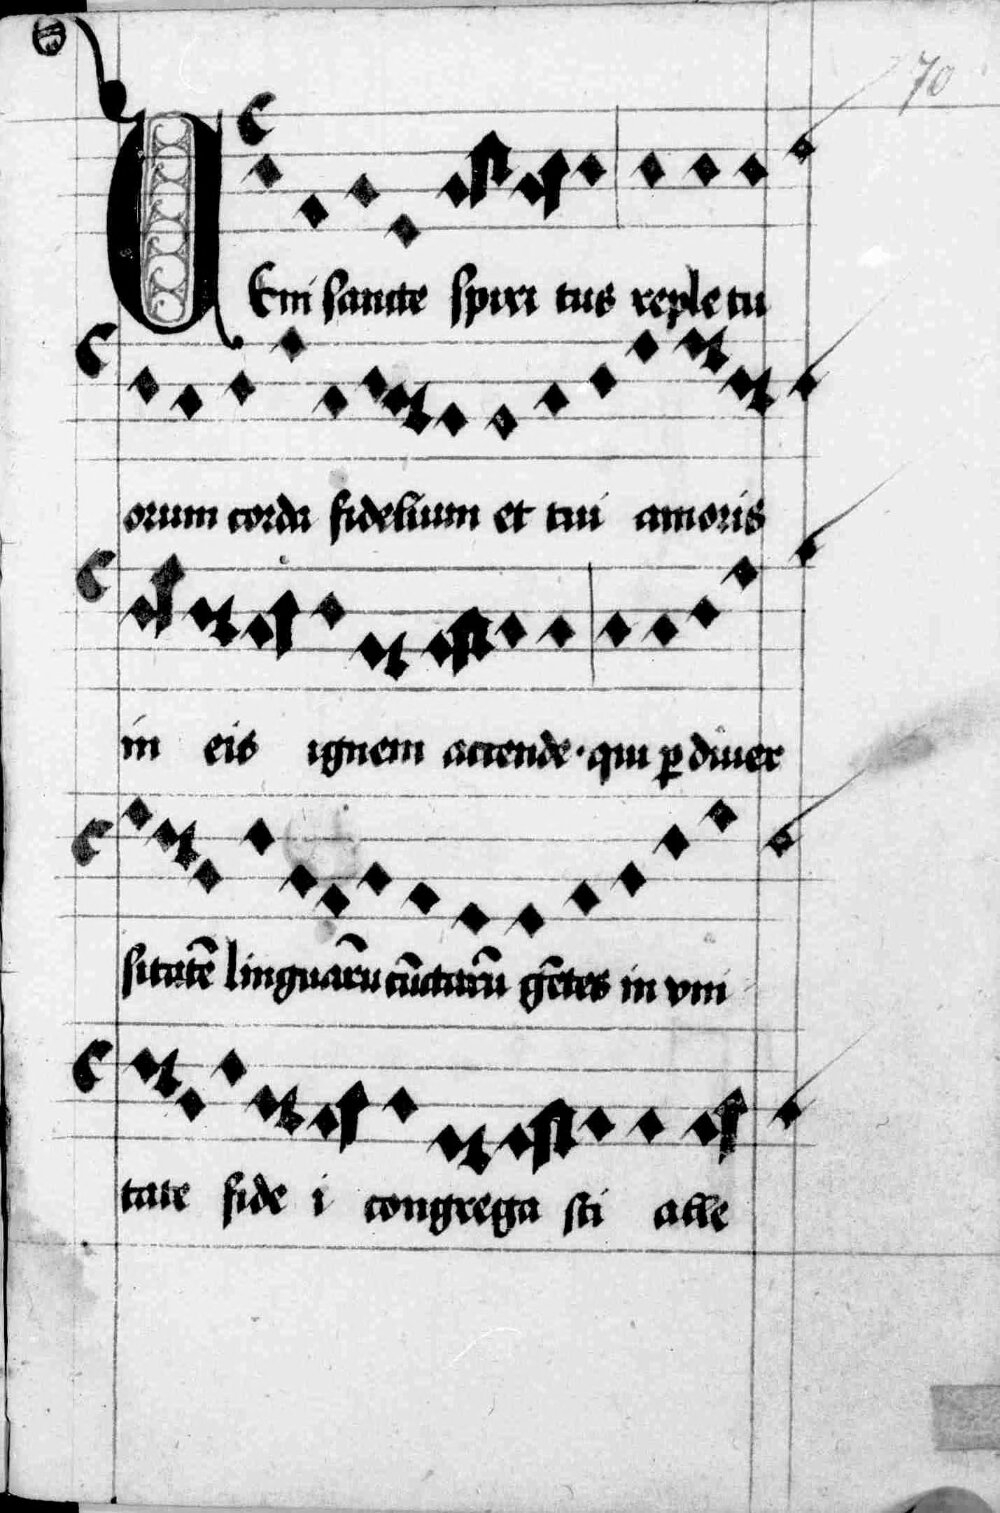 70
VEni sancte spiri tus reple tu
orum corda fidelium et tui amoris
in eis ignem accende · qui ꝑ diuer
sitatē linguarū cūctarū gētes in vni
tate fide i congrega sti alle